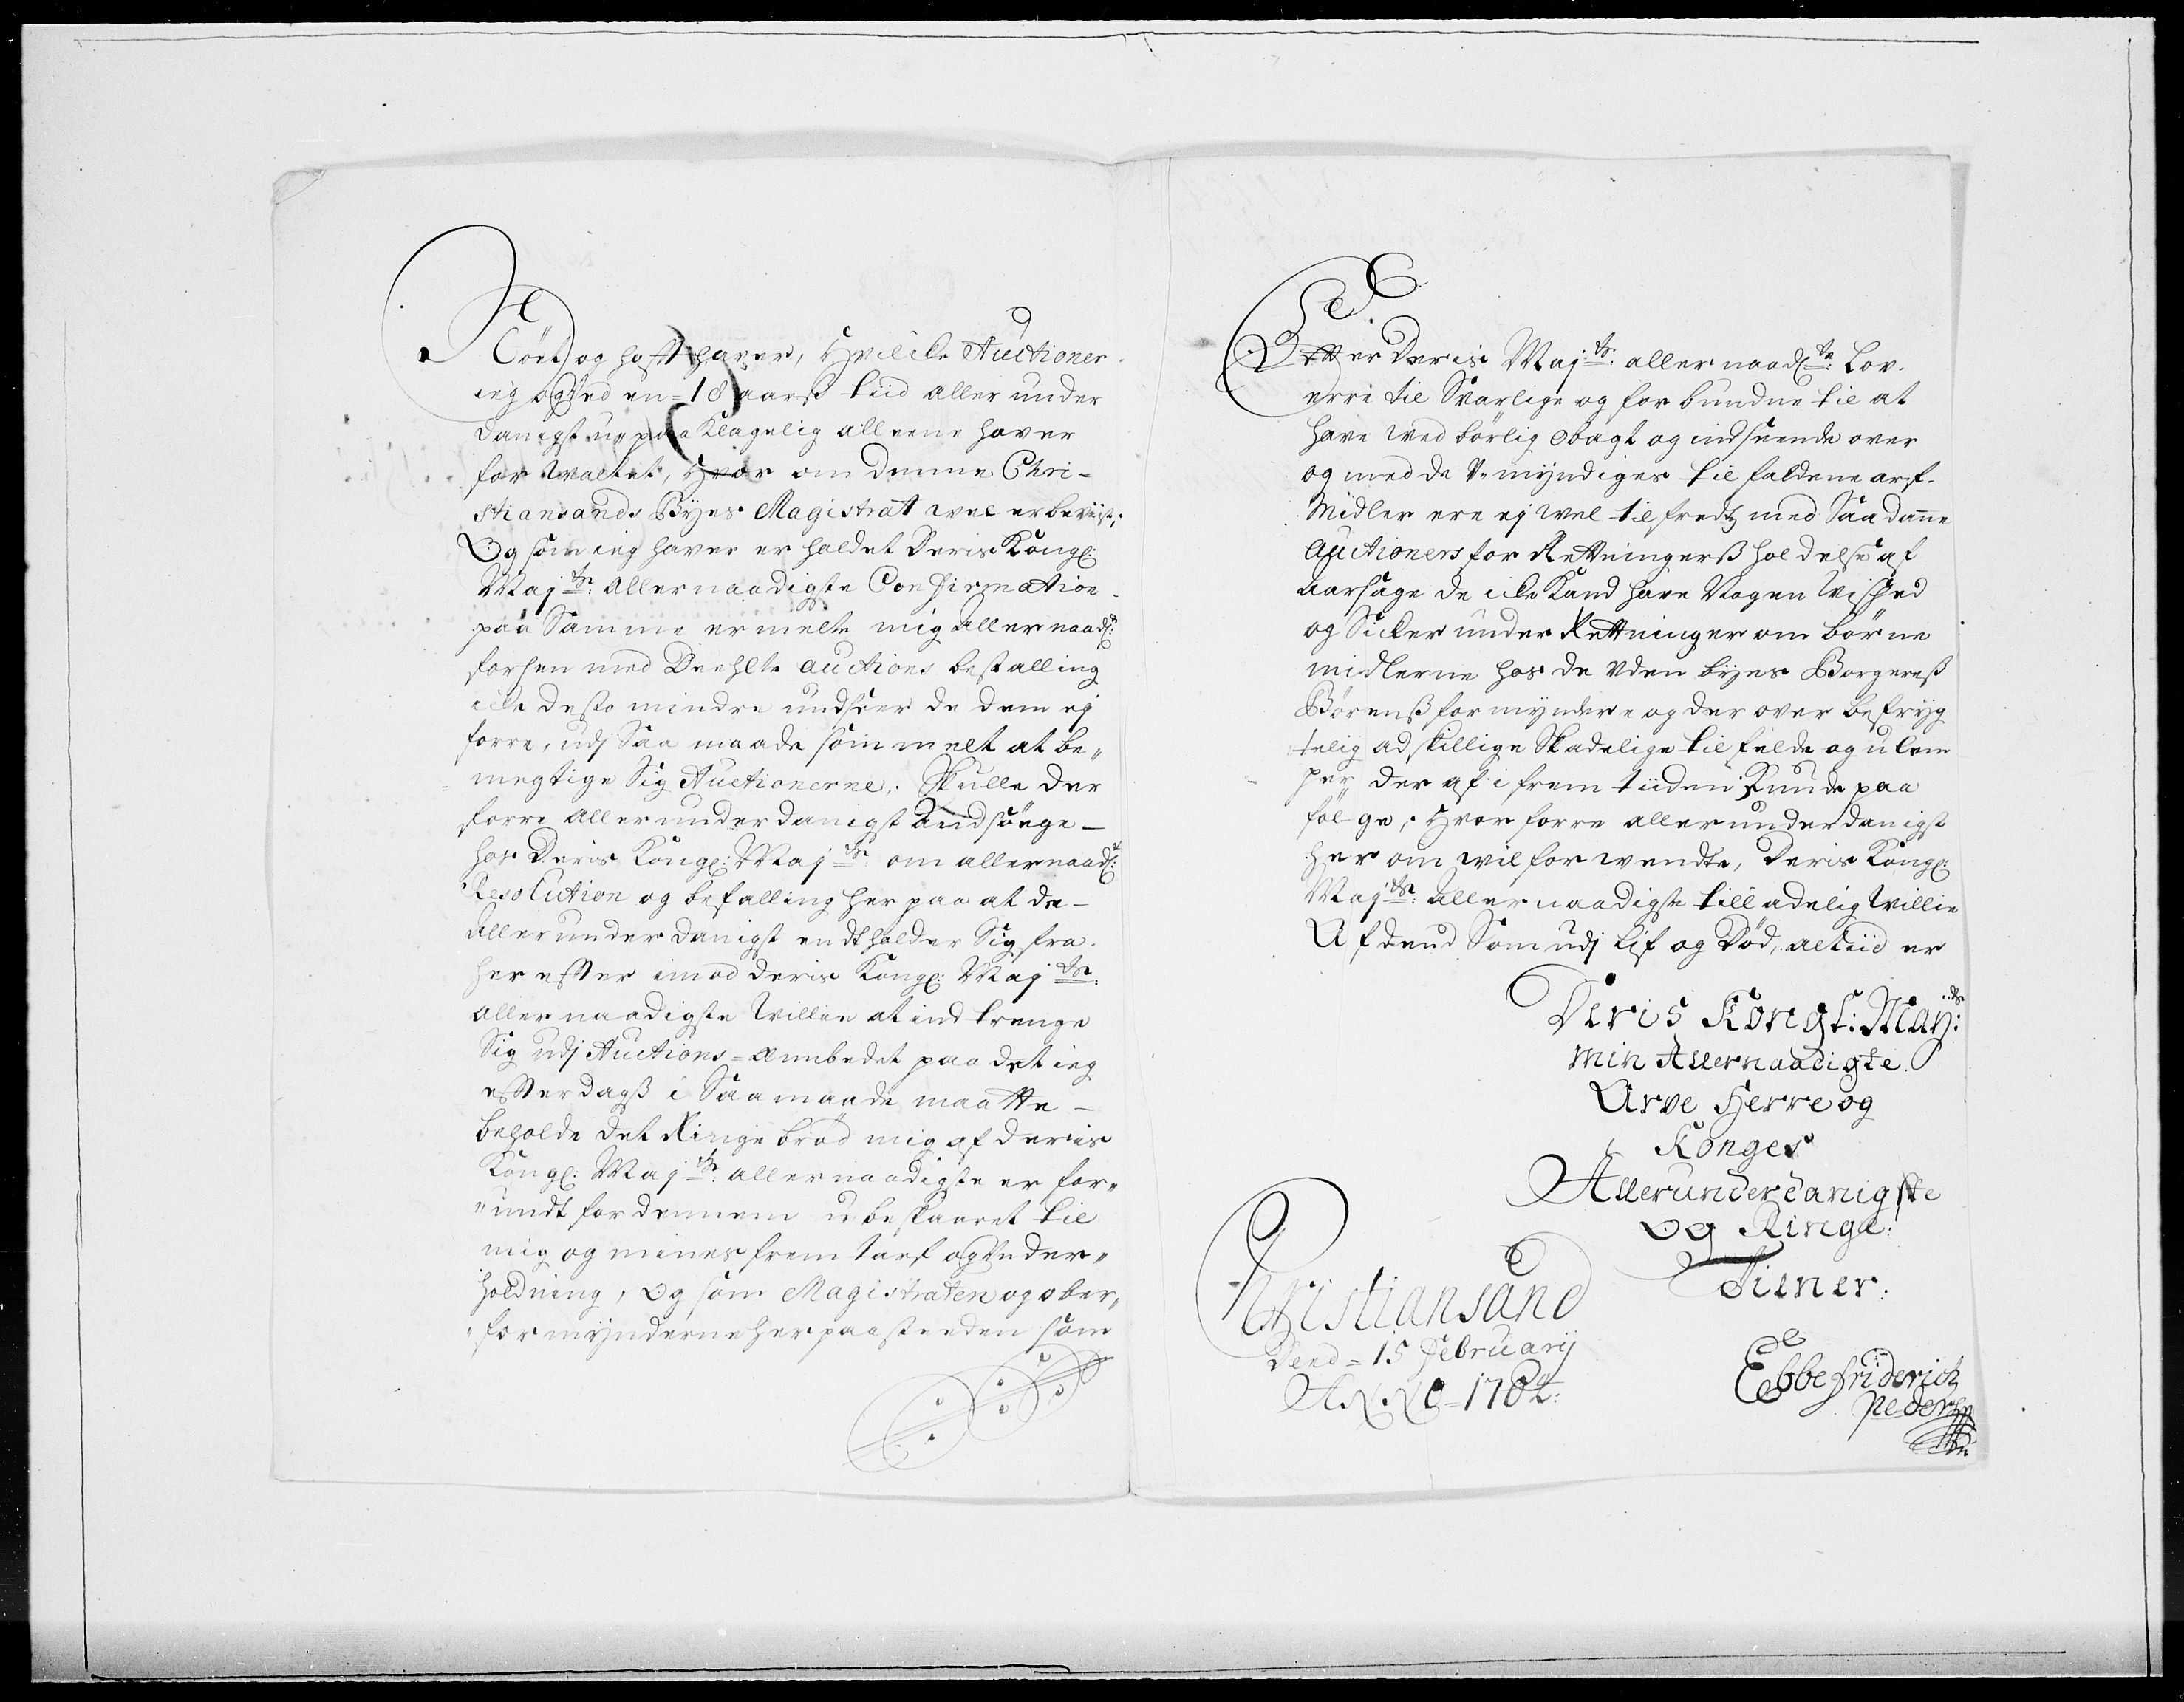 Nöet) og hafft haver, Hvilcke Auctioner
ieg og ved en = 18 aarß tiid aller under
danigst u„paa Klagelig alleene haver
for waltet, Hvor om denne Chri-
stiansands Byes Magistrat wel er beviist,
Og som ieg haver er holdet Deris Kongl:
Maj:ts: Allernaadigste Confirmation
paa Samme ermelte mig Allernaad:
forhen med Deehlte auctions bestalling
icke desto mindre undseer de dem ej
forre, udj Saa maade som melt at be„
megtige Sig Auctionerne. Skulle der
forre allerunderdanigst Andsöge -
hos Deris Kongl: Maj:ts om allernaad:
Resolution og befalling her paa at de -
Allerunderdanigst endtholder Sig fra.
her effter imod deris Kongl: Maj:ts:
allernaadigste Willie at ind trenge
Sig udj Auctions = Ambedet paa det ieg
effter dagß i Saa maade maatte -
beholde det Ringe bröd mig af deris
Kongl: Maj:ts: allernaadigste er for„
„undt for dennem u beskaaret til
mig og mines frem tarf og Under„
holdning, Og som Magistraten og ober„
„formynderne her paa steeden som
Efftter Deris Maj:ts: allernaad:te: Lov.
erre til Svarlige og for bundne til at
have wed börlig obagt og indseende over
og med de Umyndiges til faldene arf.
Midler ere ej wel tilfredtz med Saadanne
Auctioners for Rettningerß holdelse af
aarsage de icke Kand have Nogen Vished
og Sicker under Rettninger om börne
midlerne hos de Uden byes Borgereß
Börenß formyndere og der over befryg
telig ad skillige Skadelige til felde og ulem
per der af i frem tiiden Kunde paa
fölge, Hvor forre aller underdanigst
her om wil for wendte, Deris Kongl:
Maj:ts: Allernaadigste till adelig Willie
Af dend Som udj Lif og Död, altiid er
Deris Kongl: May:ts:
min Allernaadigste.
Arve Herre og
Konges
Allerunderdanigste
og Ringe:
Tiener:
Christiansand
Dend = 15 February
ANNO = 1702:
Ebbe friderich
Peders: